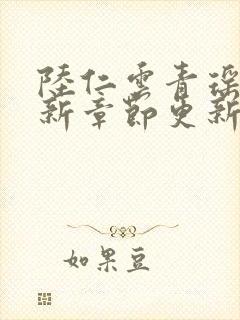 陸仁雲青瑤
新章節更新
如果豆